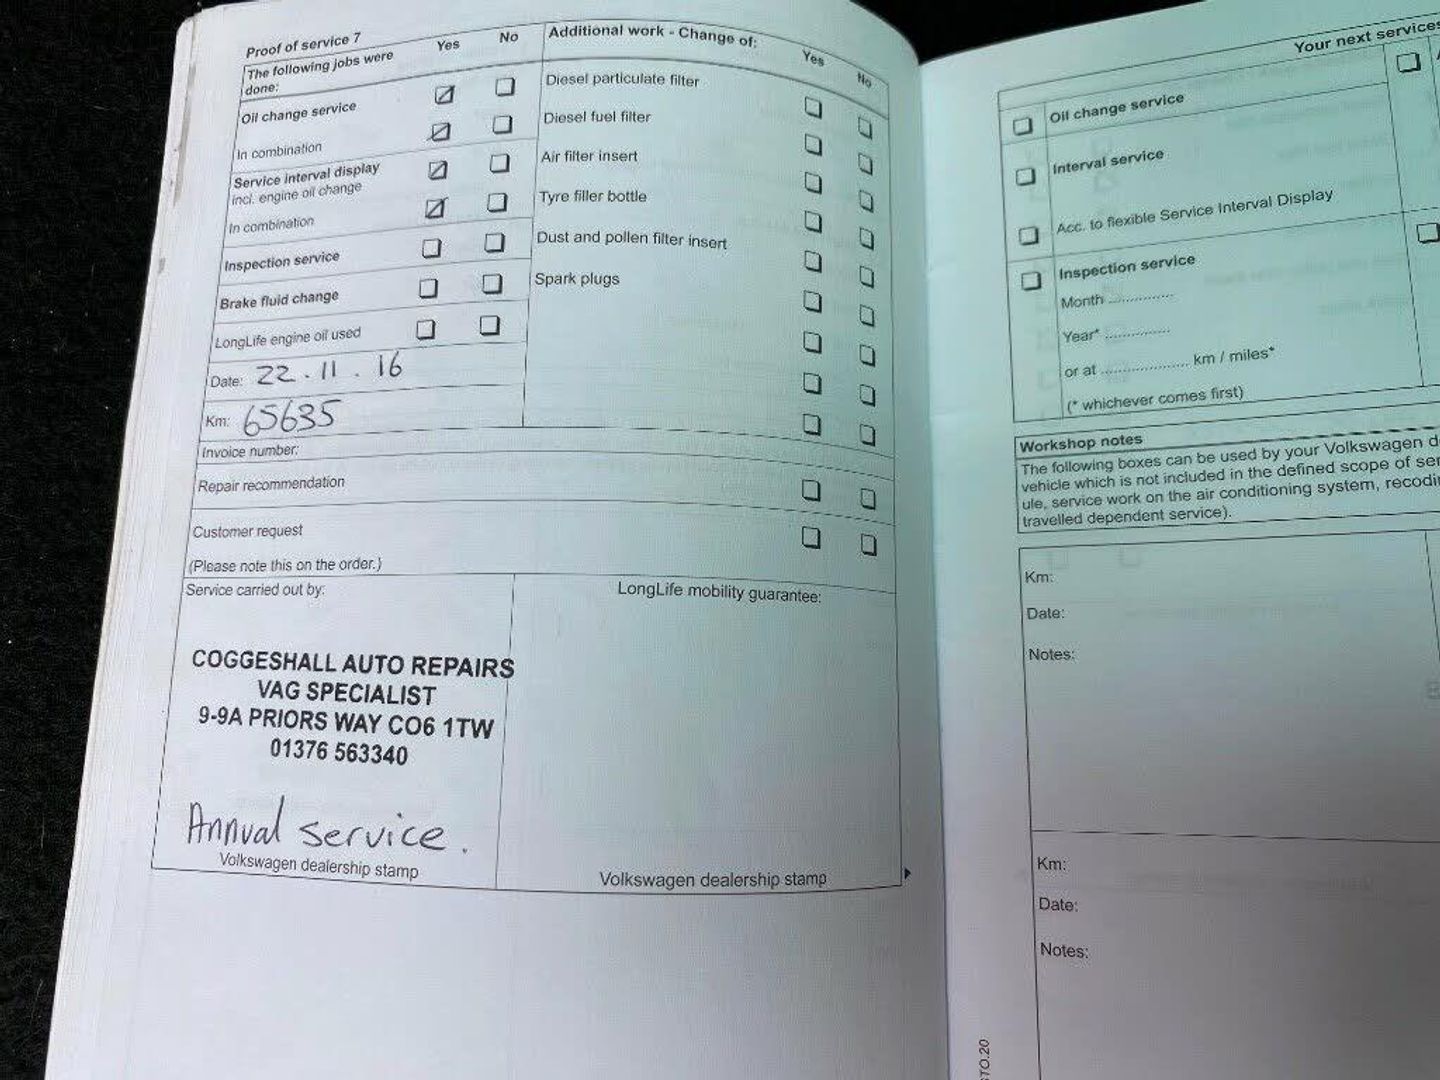 Proof of service 7
The following jobs were done:
Yes No
Additional work - Change of:
Yes No
Oil change service
In combination
Service interval display
incl. engine oil change
In combination
Inspection service
Brake fluid change
LongLife engine oil used
Date: 22.11.16
Km: 65635
Diesel particulate filter
Diesel fuel filter
Air filter insert
Tyre filler bottle
Dust and pollen filter insert
Spark plugs
Invoice number:
Repair recommendation
Customer request
(Please note this on the order.)
Service carried out by:
COGGESHALL AUTO REPAIRS
VAG SPECIALIST
9-9A PRIORS WAY CO6 1TW
01376 563340
Annual service.
Volkswagen dealership stamp
LongLife mobility guarantee:
Volkswagen dealership stamp
Your next services
Oil change service
Interval service
Acc. to flexible Service Interval Display
Inspection service
Month ..............
Year* ..............
or at ................... km / miles*
(* whichever comes first)
Workshop notes
The following boxes can be used by your Volkswagen
vehicle which is not included in the defined scope of
ule, service work on the air conditioning system,
travelled dependent service).
Km:
Date:
Notes:
Km:
Date:
Notes: